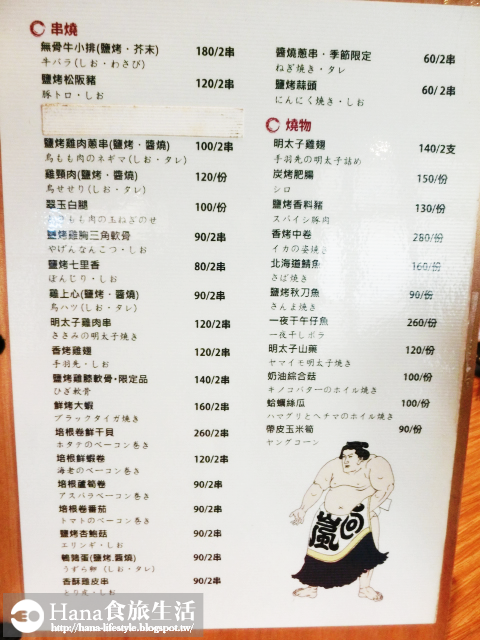 串燒
無骨牛小排(鹽烤・芥末) 180/2串
牛バラ(しお・わさび)
鹽烤松阪豬 120/2串
豚トロ・しお
鹽烤雞肉蔥串(鹽烤・醬燒) 100/2串
鳥もも肉のネギマ(しお・タレ)
雞頸肉(鹽烤・醬燒) 120/份
鳥せせり(しお・タレ)
翠玉白腿 100/份
もも肉の玉ねぎのせ
鹽烤雞胸三角軟骨 90/2串
やげんなんこつ・しお
鹽烤七里香 80/2串
ぼんじり・しお
雞上心(鹽烤・醬燒) 90/2串
鳥ハツ(しお・タレ)
明太子雞肉串 120/2串
ささみの明太子焼き
香烤雞翅 120/2串
手羽先・しお
鹽烤雞膝軟骨・限定品 140/2串
ひざ軟骨
鮮烤大蝦 160/2串
ブラックタイガ焼き
培根卷鮮干貝 260/2串
ホタテのベーコン巻き
培根鮮蝦卷 120/2串
海老のベーコン巻き
培根蘆筍卷 90/2串
アスパラベーコン巻き
培根卷番茄 90/2串
トマトのベーコン巻き
鹽烤杏鮑菇 90/2串
エリンギ・しお
鵪鶉蛋(鹽烤.醬燒) 90/2串
うずら卵(しお・タレ)
香酥雞皮串 90/2串
とり皮・しお
醬燒蔥串・季節限定 60/2串
ねぎ焼き・タレ
鹽烤蒜頭 60/2串
にんにく焼き・しお
燒物
明太子雞翅 140/2支
手羽先の明太子詰め
炭烤肥腸 150/份
シロ
鹽烤香料豬 130/份
スパイシ豚肉
香烤中卷 280/份
イカの姿焼き
北海道鯖魚 160/份
さば焼き・しお
鹽烤秋刀魚 90/份
さんま焼き
一夜干午仔魚 260/份
一夜干しボラ
明太子山藥 120/份
ヤマイモ明太子焼き
奶油綜合菇 100/份
キノコバターのホイル焼き
蛤蠣絲瓜 100/份
ハマグリとヘチマのホイル焼き
帶皮玉米筍 90/份
ヤングコーン
嵐
Hana食旅生活
http://hana-lifestyle.blogspot.tw/